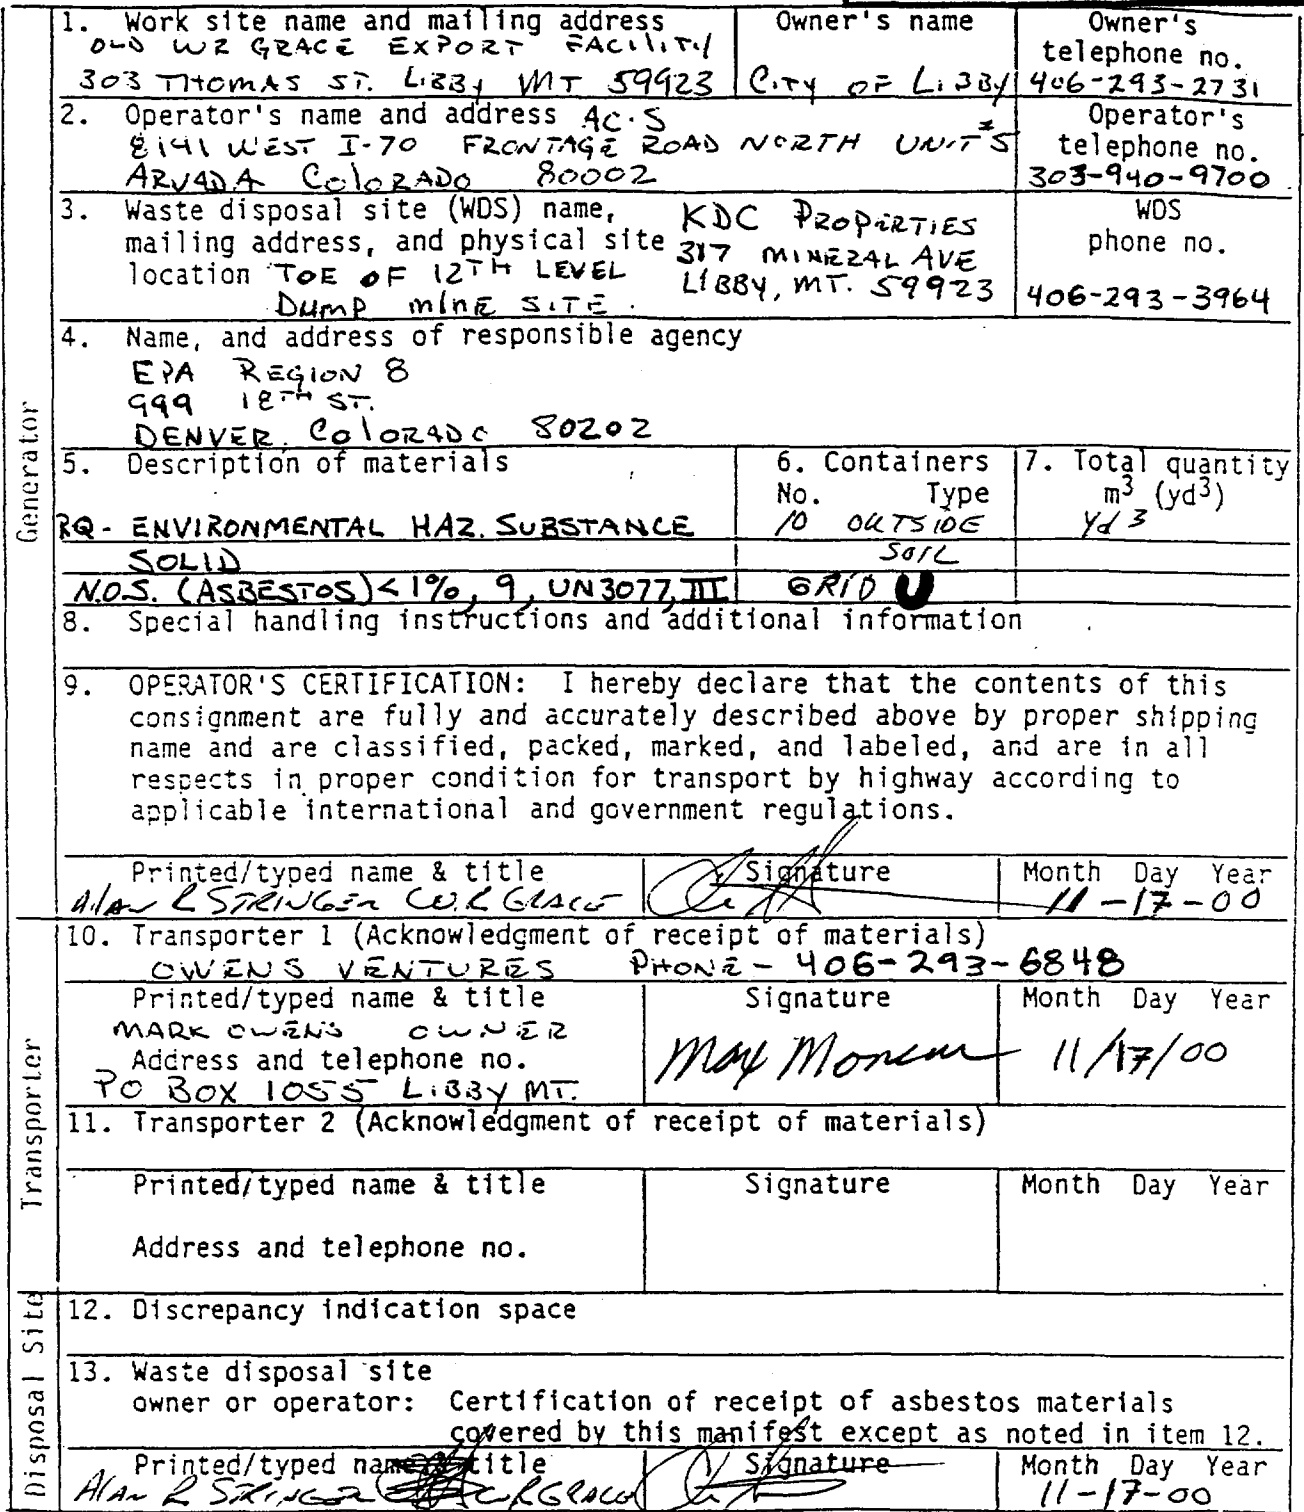 1. Work site name and mailing address
OLD WR GRACE EXPORT FACILITY
303 THOMAS ST. LIBBY MT 59923
Owner's name
CITY OF LIBBY
Owner's
telephone no.
406-293-2731
2. Operator's name and address AC·S
8141 WEST I-70 FRONTAGE ROAD NORTH UNIT #5
ARVADA COLORADO 80002
Operator's
telephone no.
303-940-9700
3. Waste disposal site (WDS) name,
mailing address, and physical site
location TOE OF 12TH LEVEL
DUMP MINE SITE.
KDC PROPERTIES
317 MINERAL AVE
LIBBY, MT. 59923
WDS
phone no.
406-293-3964
4. Name, and address of responsible agency
EPA REGION 8
999 18TH ST.
DENVER, COLORADO 80202
Generator
5. Description of materials
RQ - ENVIRONMENTAL HAZ. SUBSTANCE
SOLID
N.O.S. (ASBESTOS) < 1%, 9, UN3077, III
6. Containers
No. Type
10 OUTSIDE
SOIL
GRID U
7. Total quantity
m3 (yd3)
Yd 3
8. Special handling instructions and additional information
9. OPERATOR'S CERTIFICATION: I hereby declare that the contents of this
consignment are fully and accurately described above by proper shipping
name and are classified, packed, marked, and labeled, and are in all
respects in proper condition for transport by highway according to
applicable international and government regulations.
Printed/typed name & title
Alan R STRINGER W.R GRACE
Signature
Month Day Year
11-17-00
Transporter
10. Transporter 1 (Acknowledgment of receipt of materials)
OWENS VENTURES PHONE - 406-293-6848
Printed/typed name & title
MARK OWENS OWNER
Address and telephone no.
PO BOX 1055 LIBBY MT.
Signature
Month Day Year
11/17/00
11. Transporter 2 (Acknowledgment of receipt of materials)
Printed/typed name & title
Signature
Month Day Year
Address and telephone no.
Disposal Site
12. Discrepancy indication space
13. Waste disposal site
owner or operator: Certification of receipt of asbestos materials
covered by this manifest except as noted in item 12.
Printed/typed name & title
Alan R STRINGER W R GRACE
Signature
Month Day Year
11-17-00